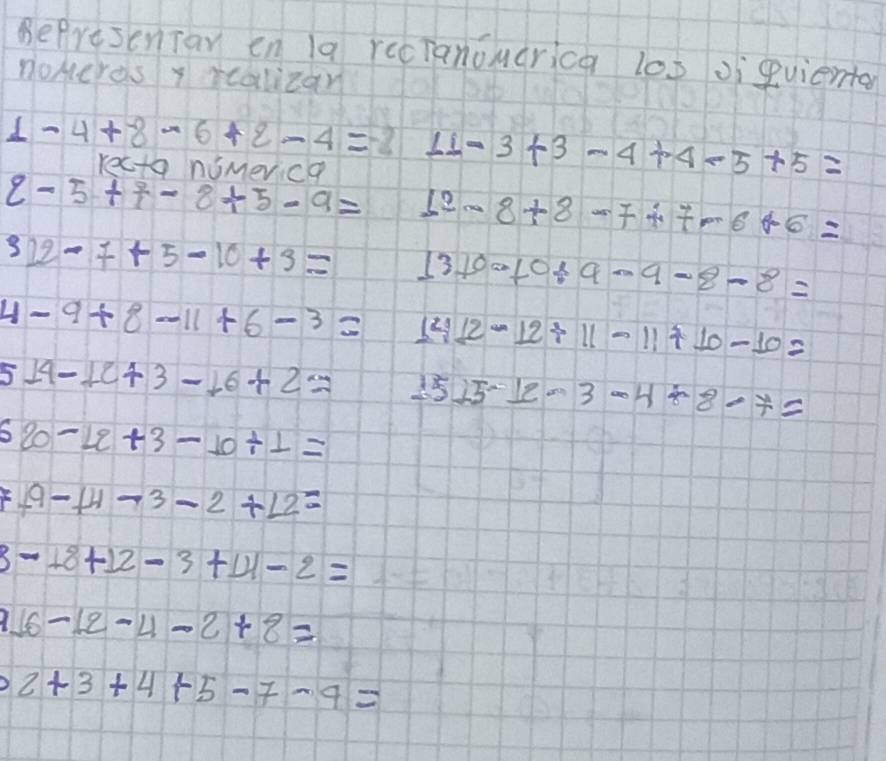 Representar en la rectanúmerica los siguientes
números y realizar
1 - 4 + 8 - 6 + 2 - 4 = -2
recta númerica
2 - 5 + 7 - 8 + 5 - 9 =
3 12 - 7 + 5 - 10 + 3 =
4 - 9 + 8 - 11 + 6 - 3 =
5 14 - 12 + 3 - 16 + 2 =
6 20 - 12 + 3 - 10 + 1 =
7 19 - 14 - 3 - 2 + 12 =
8 - 18 + 12 - 3 + 14 - 2 =
9 16 - 12 - 4 - 2 + 8 =
2 + 3 + 4 + 5 - 7 - 9 =
11 - 3 + 3 - 4 + 4 - 5 + 5 =
12 - 8 + 8 - 7 + 7 - 6 + 6 =
13 10 - 10 + 9 - 9 - 8 - 8 =
14 12 - 12 + 11 - 11 + 10 - 10 =
15 15 - 12 - 3 - 4 + 8 - 7 =